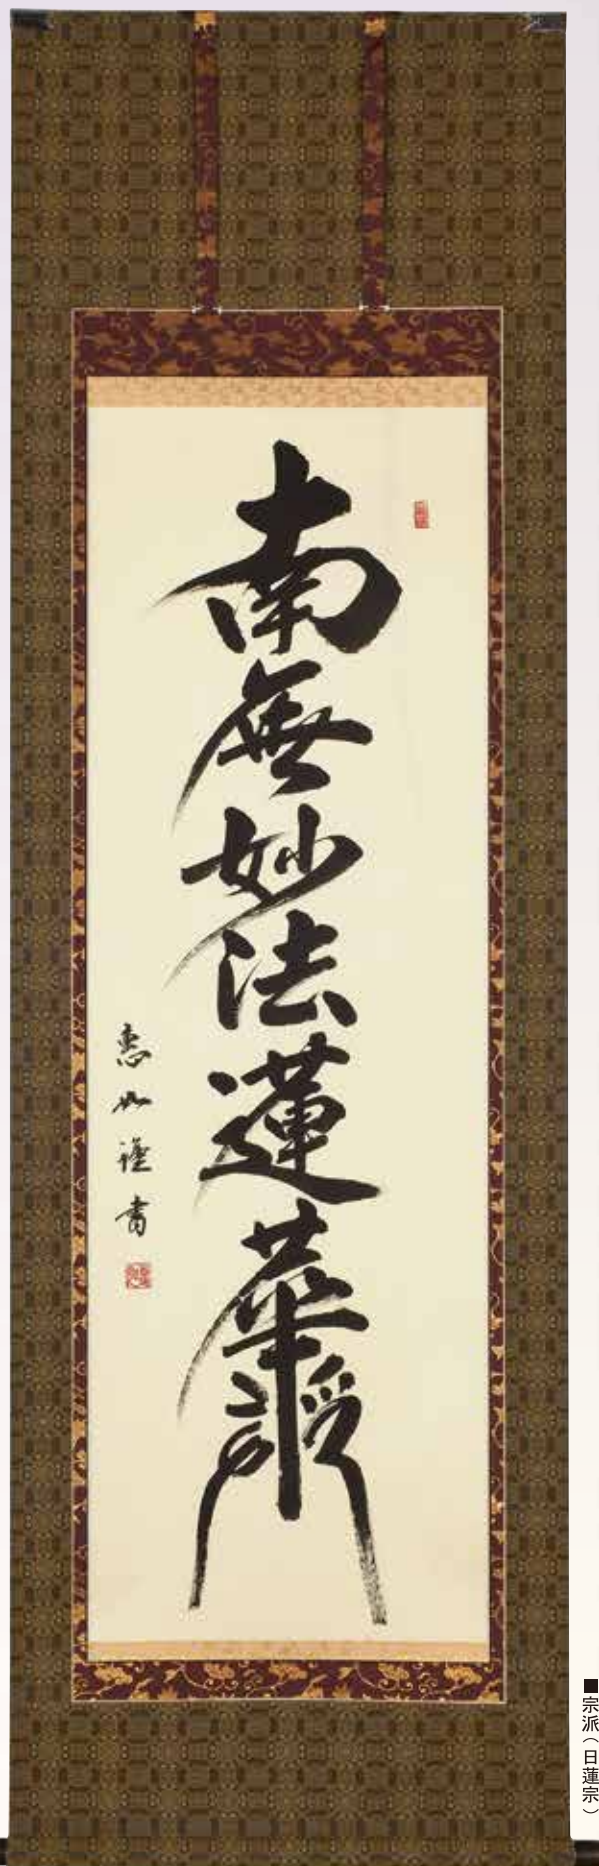 南無妙法蓮華経
恵如謹書
■宗派（日蓮宗）